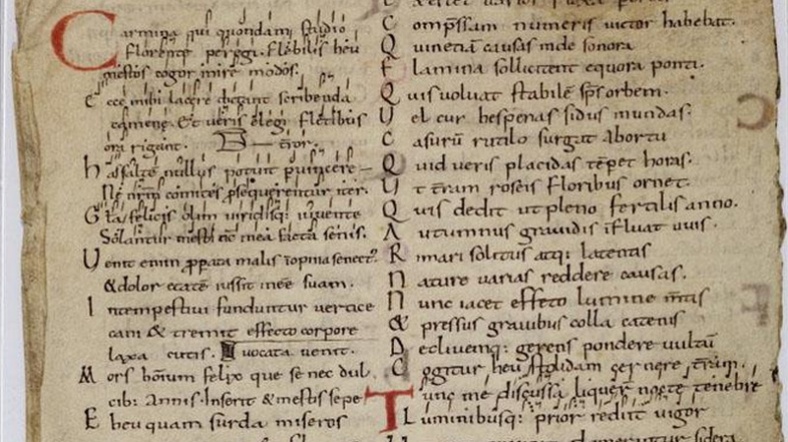 Carmina qui quondam studio
florente peregi. Flebilis heu
mestos cogor inire modos.
Ecce mihi lacere dictant scribenda
camene. Et veris elegi fletibus
ora rigant.
Has saltē nullus potuit puincere
Ne nrm̄ comites ꝓsequerentur iter.
Gła felicis olim viridisq: iuvente
Solantur mesti nc̄ mea facta senis.
Venit enim ꝓpata malis īopina senect?
& dolor etatē iussit inēe suam.
Intempestivi funduntur vertice
cani & tremit effeto corpore
laxa cutis. vocata venit.
Mors hoīum felix que se nec dul
cib: Annis. Inserit & mestis sepe
Eheu quam surda miseros
Compr̄sam numeris victor habebat.
Quinetiā causas unde sonora
Flamina sollicitent equora ponti.
Quis voluat stabilē sp̄s orbem.
Vel cur hesperias sidus in undas.
Casurū rutilo surgat abortu
Quid veris placidas tēpet horas.
Vt t̄ram roseis floribus ornet.
Quis dedit ut pleno fertilis anno.
Autumnus gravidis īfluat uvis.
Rimari solitus atq: latentis
Nature varias reddere causas.
Nunc iacet effeto lumine m̄tis
& pressus gravibus colla catenis
Declivemq: gerens pondere vultū
Cogitur heu stolidam cernere t̄ram.
Tunc me discussa liquer nocte tenebre
Luminibusq: prior rediit vigor